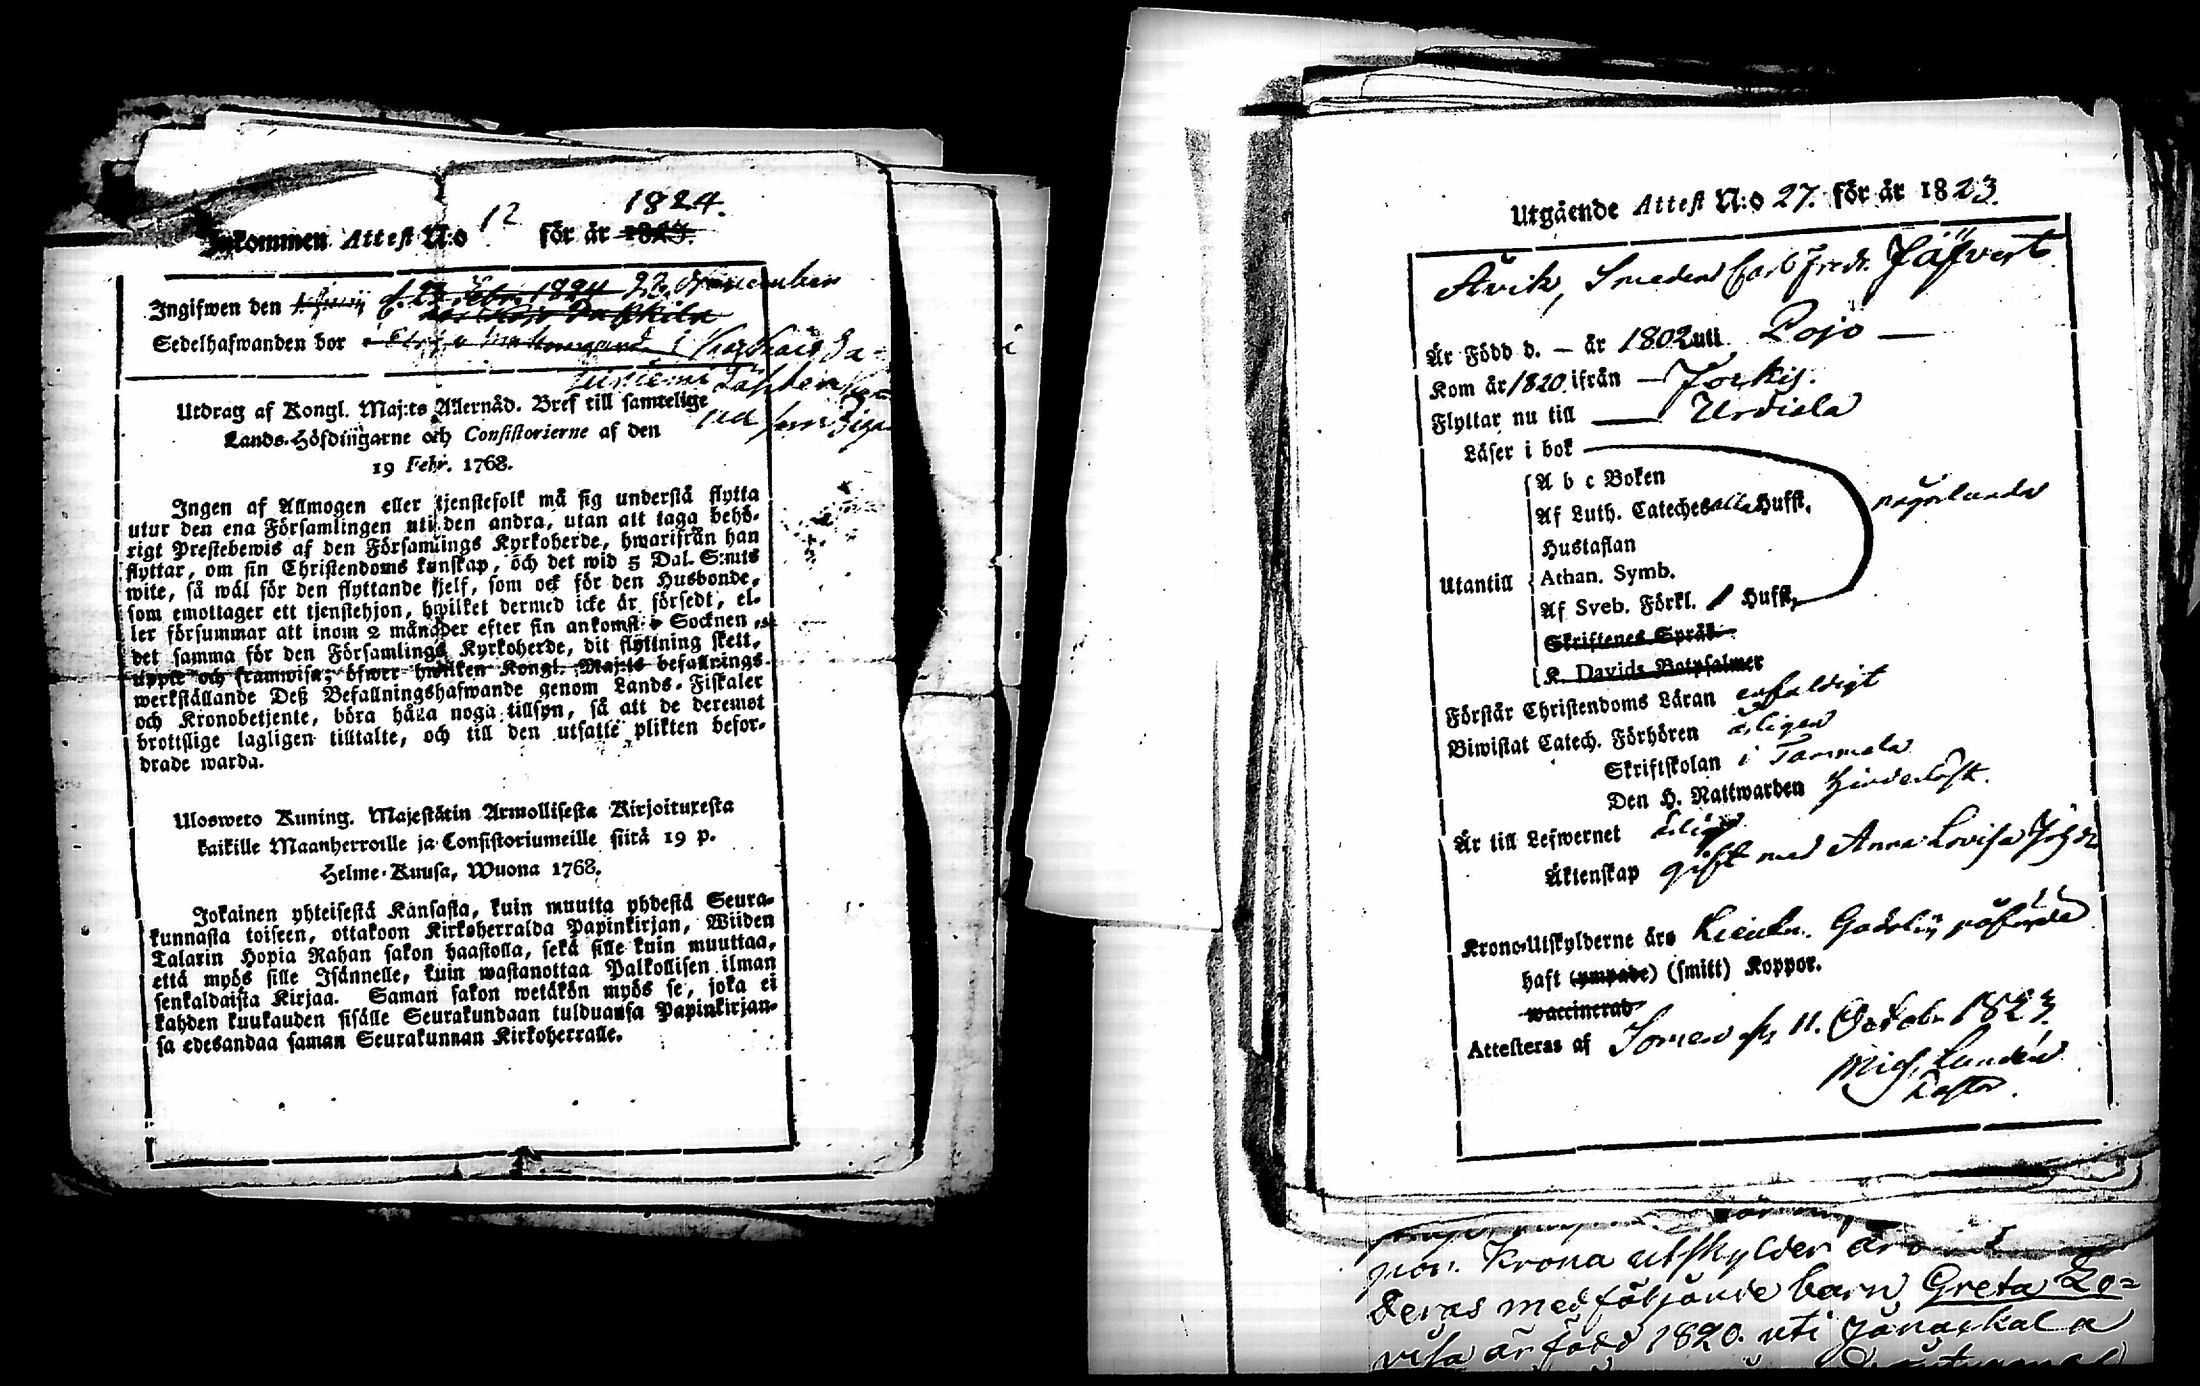 1824.
Inkommen Attest N:o 12 för år 1823.
Ingifwen den 23. November
Sedelhafwanden bor
Utdrag af Kongl. Maj:ts Allernåd. Bref till samtelige
Lands-Höfdingarne och Consistorierne af den
19 Febr. 1768.
Ingen af Allmogen eller tjenstefolk må sig understå flytta
utur den ena Församlingen uti den andra, utan att taga behö-
rigt Prestebewis af den Församlings Kyrkoherde, hwarifrån han
flyttar, om sin Christendoms kunskap, och det wid 5 Dal. S:mts
wite, så wäl för den flyttande sjelf, som ock för den Husbonde,
som emottager ett tjenstehjon, hwilket dermed icke är försedt, el-
ler försummar att inom 2 månader efter sin ankomst Socknen
det samma för den Församlings Kyrkoherde, dit flyttning skett,
uppte och framwisa; öfwer hwilken Kongl. Maj:ts befallnings
werkställande Deß Befallningshafwande genom Lands-Fiskaler
och Kronobetjente, böra hålla noga tillsyn, så att de deremot
brottslige lagligen tilltalte, och till den utsatte plikten befor-
drade warda.
Ulosweto Kuning. Majestätin Armollisesta Kirjoituxesta
kaikille Maanherroille ja Consistoriumeille siitä 19 p.
Helme-Kuusa, Wuona 1768.
Jokainen yhteisestä Kansasta, kuin muutta yhdestä Seura-
kunnasta toiseen, ottakoon Kirkoherralda Papinkirjan, Wiiden
Talarin Hopia Rahan sakon haastolla, sekä sille kuin muuttaa,
että myös sille Isännelle, kuin wastanottaa Palkollisen ilman
senkaldaista Kirjaa. Saman sakon wetäkön myös se, joka ei
kahden kuukauden sisälle Seurakundaan tulduansa Papinkirjan-
sa edesandaa saman Seurakunnan Kirkoherralle.
Utgående Attest N:o 27. för år 1823.
Åvik, Smeden Carl Fredr. Jäfvert
Är Född d. — år 1802 uti Pojo —
Kom år 1820 ifrån — Jockis.
Flyttar nu till — Urdiala
Läser i bok
A b c Boken
Af Luth. Cateches alla Hufst.
Hustaflan
Utantill
Athan. Symb.
Af Sveb. Förkl. 1 Hufst.
någorlunda
Skriftenes Språk
K. Davids Botpsalmer
Förstår Christendoms Läran enfaldigt
Biwistat Catech. Förhören årligen
Skriftskolan i Tammela
Den H. Nattwarden hinderlöst.
Är till Lefwernet ärlig
Äktenskap gift med Anna Lovisa
Krono-Utskylderne äro Lieutn. Gadolin påförde
haft (ympade) (smitt) Koppor.
waccinerad
Attesteras af Somero d. 11. Octobr 1823.
Mich. Lundén
Pastor.
por. Krona utskylder äro
Deras medföljande barn Greta Lo-
visa är född 1820. uti Janakkala